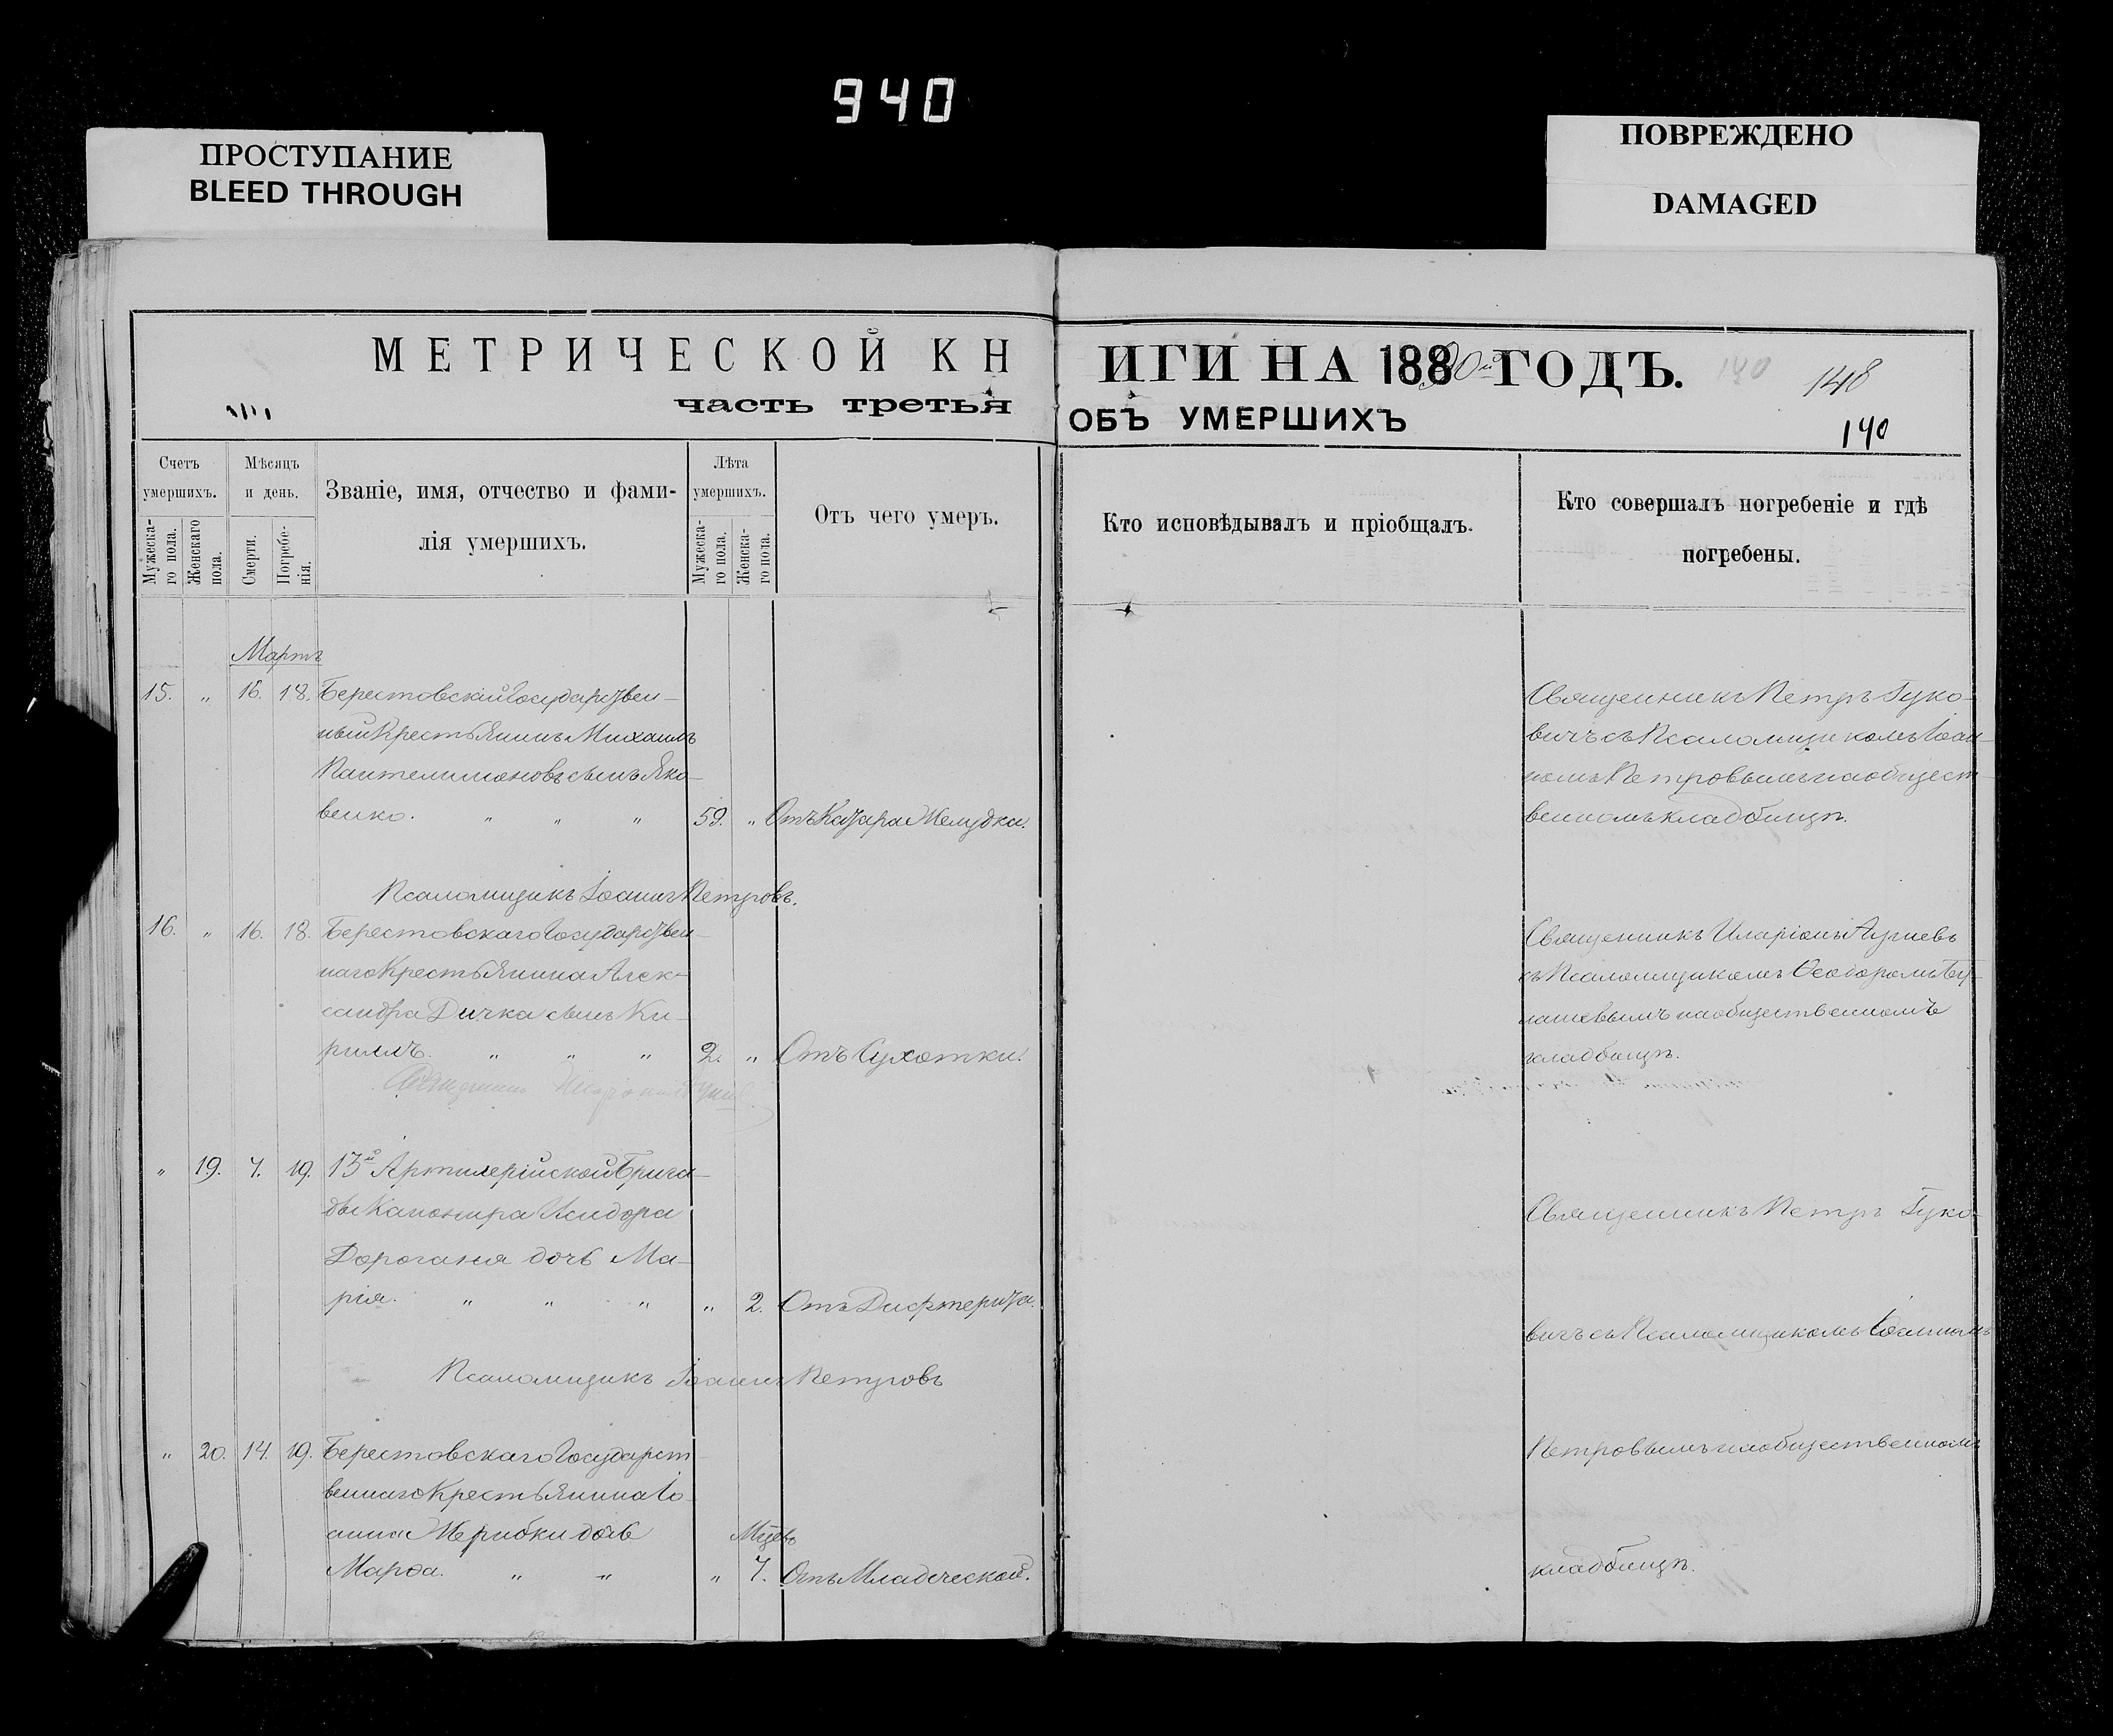 940
ПРОСТУПАНИЕ
BLEED THROUGH
ПОВРЕЖДЕНО
DAMAGED
МЕТРИЧЕСКОЙ КНИГИ НА 1880й ГОДЪ.
140
148
часть третья ОБЪ УМЕРШИХЪ
140
Счетъ умершихъ.
Мужескаго пола.
Женскаго пола.
Мѣсяцъ и день.
Смерти.
Погребенія.
Званіе, имя, отчество и фами-
лія умершихъ.
Лѣта умершихъ.
Мужеска-
го пола.
Женска-
го пола.
Отъ чего умеръ.
Кто исповѣдывалъ и пріобщалъ.
Кто совершалъ погребеніе и гдѣ
погребены.
Мартъ
15. „ 16. 18. Берестовскій Государствен-
ный Крестьянинъ Михаилъ
Пантелимоновъ сынъ Яко-
венко. „ „ „ 59. „ Отъ Катара Желудка.
Священникъ Петръ Гуко-
вичъ съ Псаломщикомъ Іоан-
номъ Петровымъ на общест-
венномъ кладбищѣ.
Псаломщикъ Іоаннъ Петровъ.
16. „ 16. 18. Берестовскаго Государствен-
наго Крестьянина Алек-
сандра Дичка сынъ Ки-
риллъ. „ „ „ 2. „ Отъ Сухотки.
Священникъ Иларіонъ
Священникъ Иларіонъ
съ Псаломщикомъ Ѳеодоромъ
на общественномъ
кладбищѣ.
„ 19. 7. 19. 13й Артилерійской Брига-
ды Канонира Исидора
Дороганя дочь Ма-
рія. „ „ „ „ 2. Отъ Дифтерита.
Псаломщикъ Іоаннъ Петровъ
„ 20. 14. 19. Берестовскаго Государст-
веннаго Крестьянина Іо-
анна Жерибки дочь
Марѳа. „ „ „ Мцевъ 7. Отъ Младеческой.
Священникъ Петръ Гуко-
вичъ съ Псаломщикомъ Іоанномъ
Петровымъ на общественномъ
кладбищѣ.